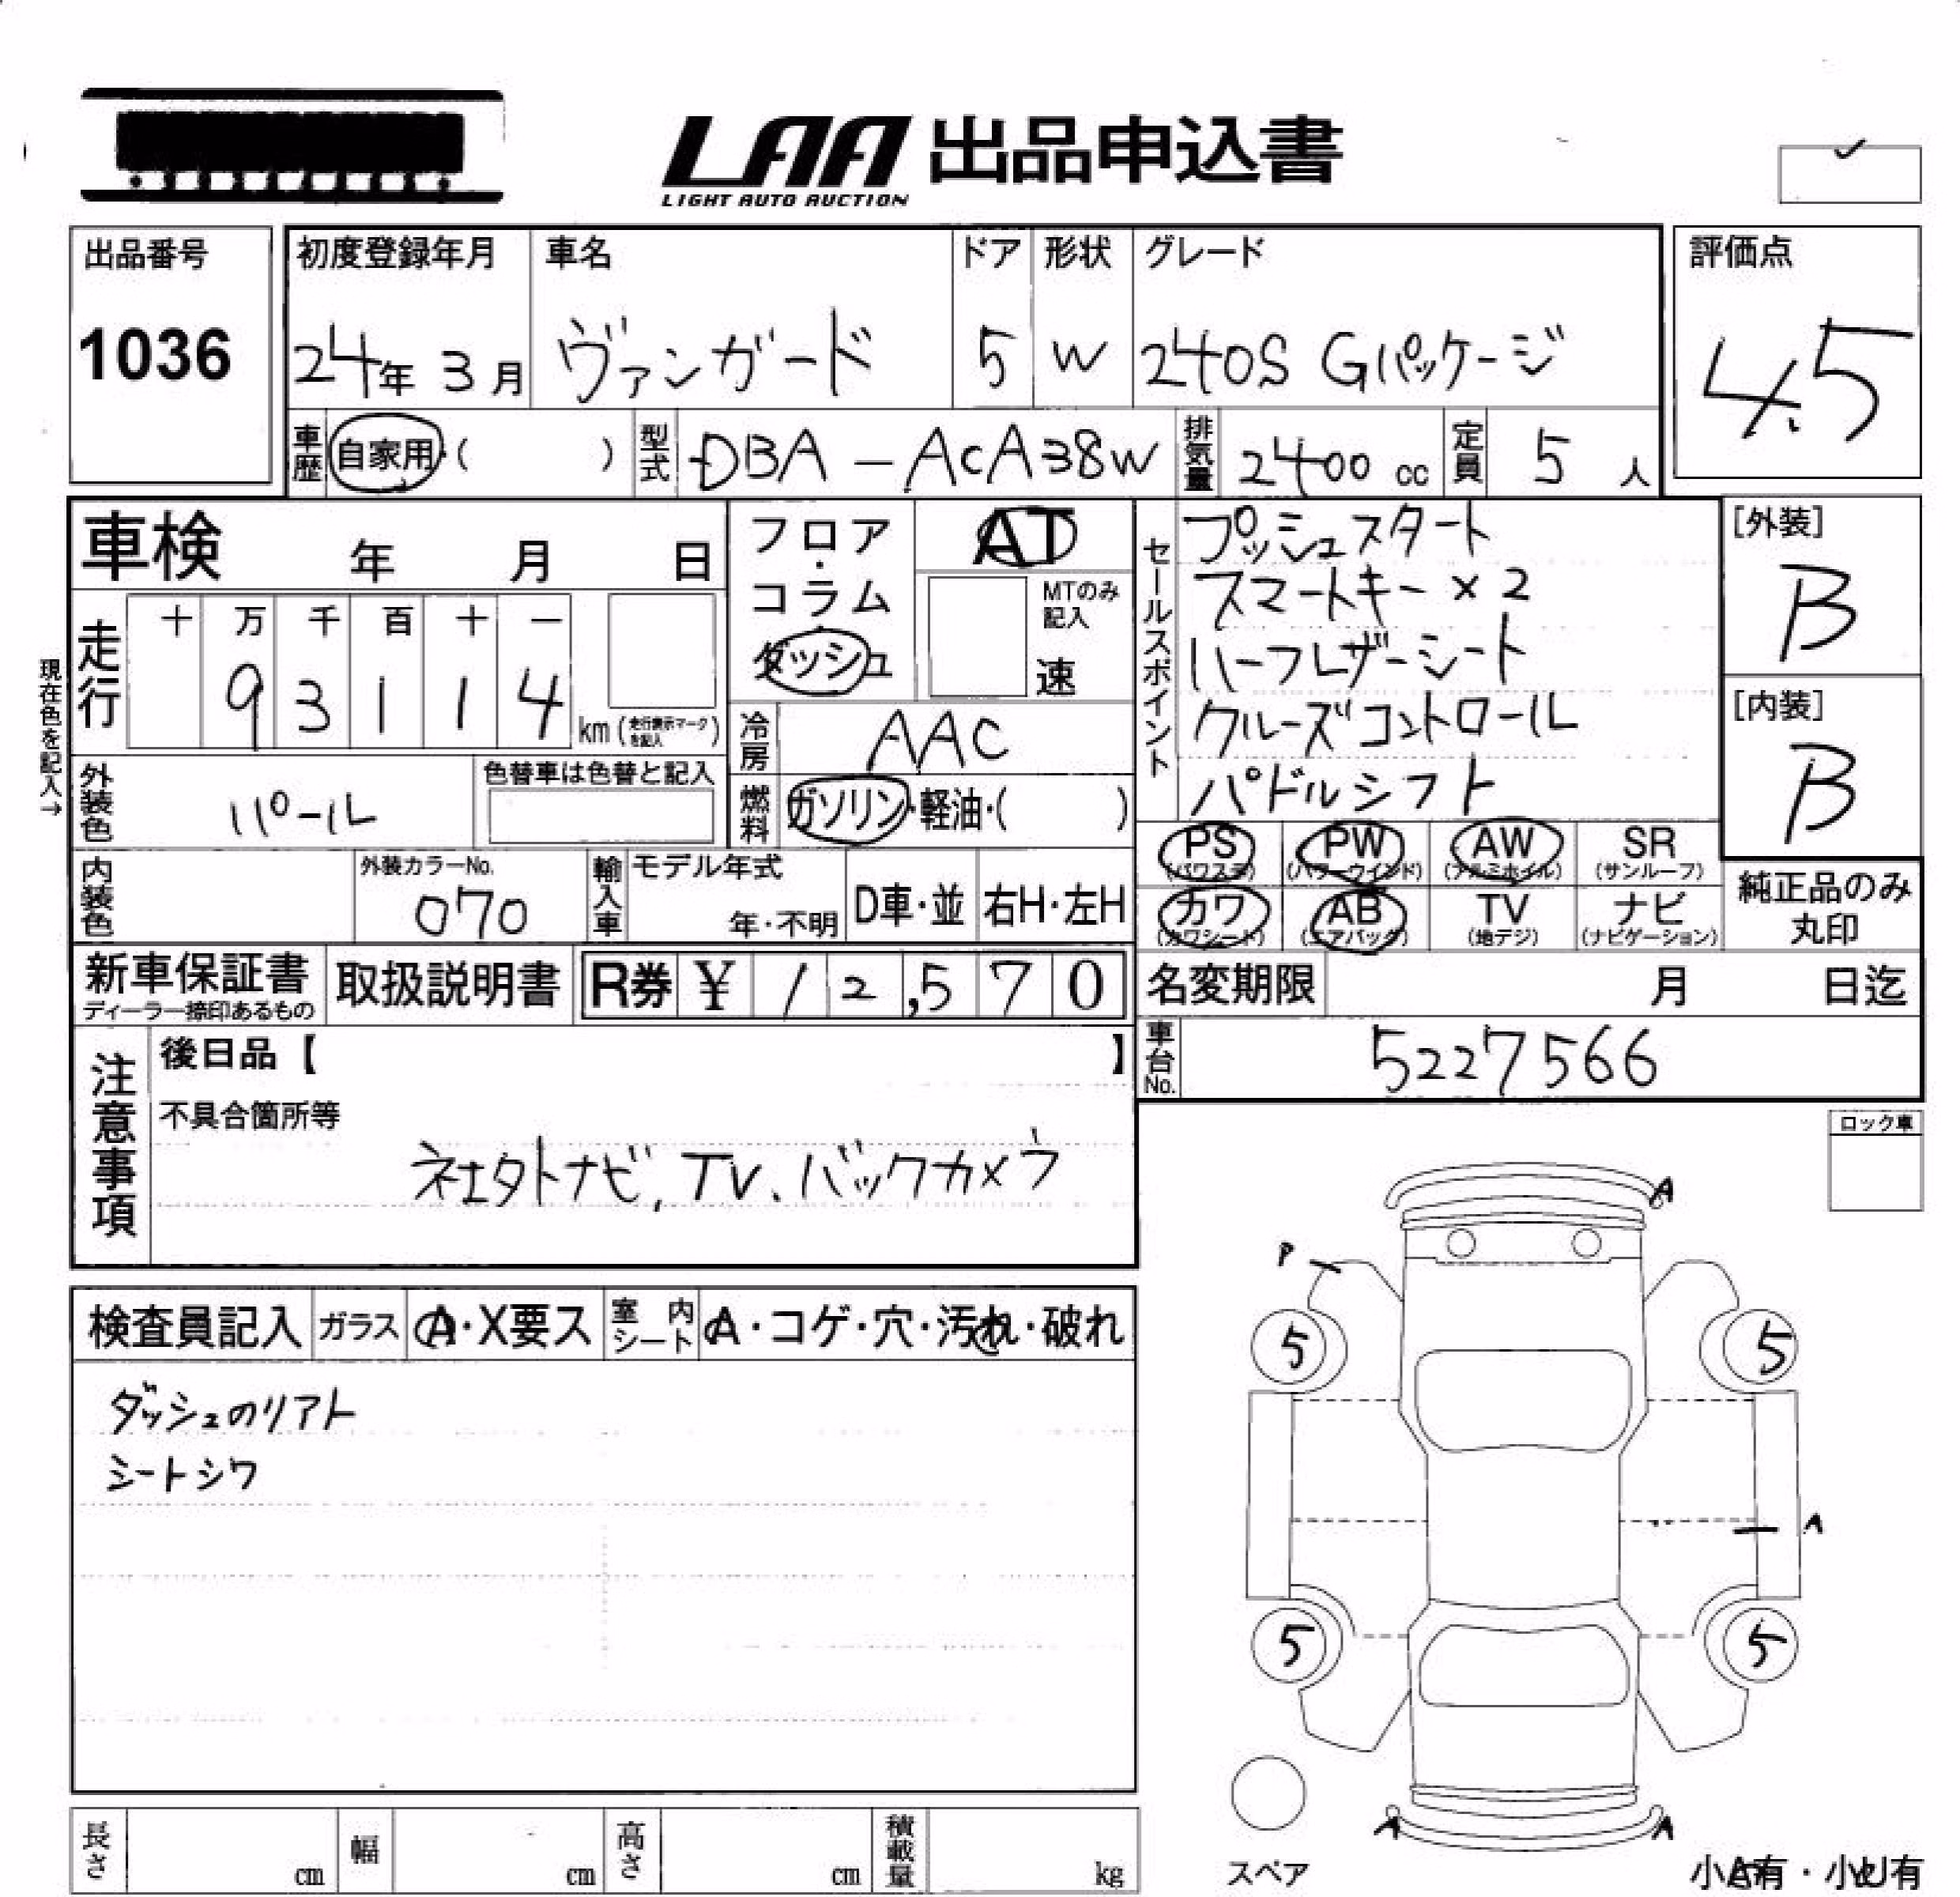 LAA 出品申込書
LIGHT AUTO AUCTION
出品番号
1036
初度登録年月 車名 ドア 形状 グレード
24年 3月 ヴァンガード 5 W 240S Gパッケージ
評価点
4.5
車歴 自家用・( ) 型式 DBA-ACA38W 排気量 2400 cc 定員 5 人
車検 年 月 日
フロア・コラム ダッシュ
AT
MTのみ記入
速
走行 十 万 千 百 十 一
9 3 1 1 4 km (走行表示マークを記入)
現在色を記入→
冷房 AAC
外装色 パール 色替車は色替と記入
燃料 ガソリン・軽油・( )
セールスポイント
プッシュスタート
スマートキー×2
ハーフレザーシート
クルーズコントロール
パドルシフト
[外装]
B
[内装]
B
PS (パワステ) PW (パワーウインド) AW (アルミホイル) SR (サンルーフ)
カワ (カワシート) AB (エアバッグ) TV (地デジ) ナビ (ナビゲーション)
純正品のみ
丸印
内装色 外装カラーNo. 070
輸入車 モデル年式 年・不明 D車・並 右H・左H
新車保証書 ディーラー捺印あるもの 取扱説明書 R券 ¥ 12,570
名変期限 月 日迄
車台No. 5227566
注意事項
後日品【 】
不具合箇所等
社外ナビ, TV、バックカメラ
ロック車
検査員記入 ガラス A・X要ス 室内シート A・コゲ・穴・汚れ・破れ
ダッシュのリアト
シートシワ
A
P
5 5
A
5 5
A A
スペア
小A有・小U有
長さ cm 幅 cm 高さ cm 積載量 kg